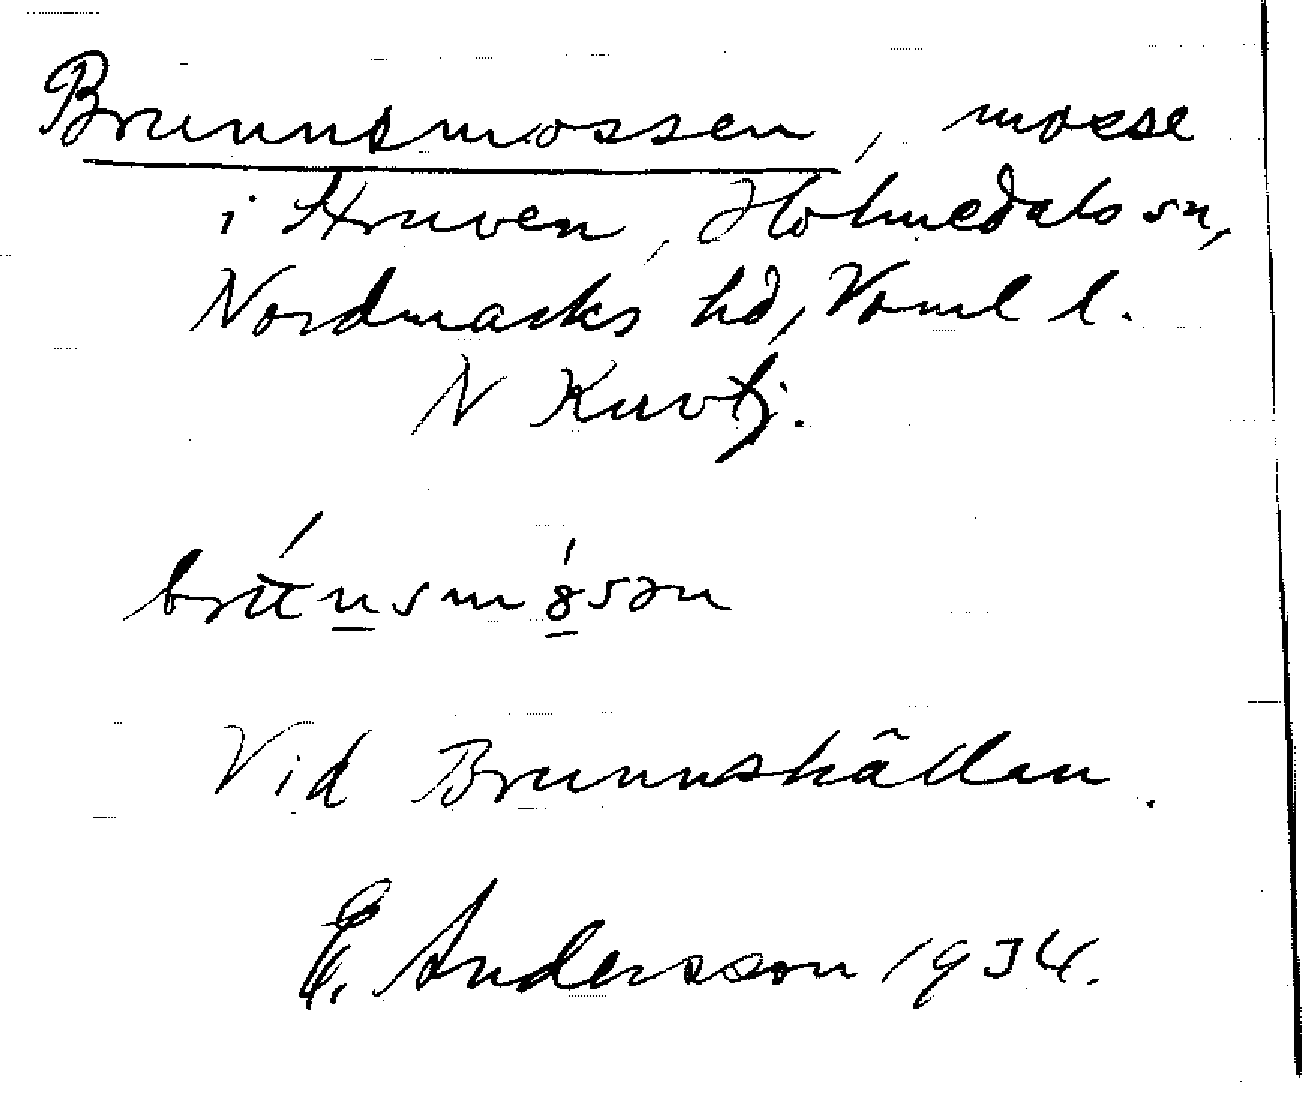 Brunnsmossen, mosse
i Struven, Holmedals sn,
Nordmarks hd, Värml l.
N Kurvtj.
Vid Brunnskällan.
E. Andersson 1934.